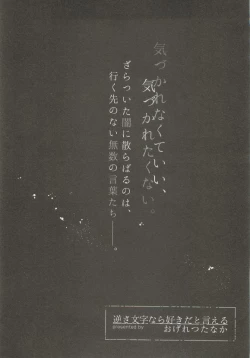 気づかれなくていい、
気づかれたくない。
ざらついた闇に散らばるのは、
行く先のない無数の言葉たち——。
逆さ文字なら好きだと言える
presented by
おげれつたなか